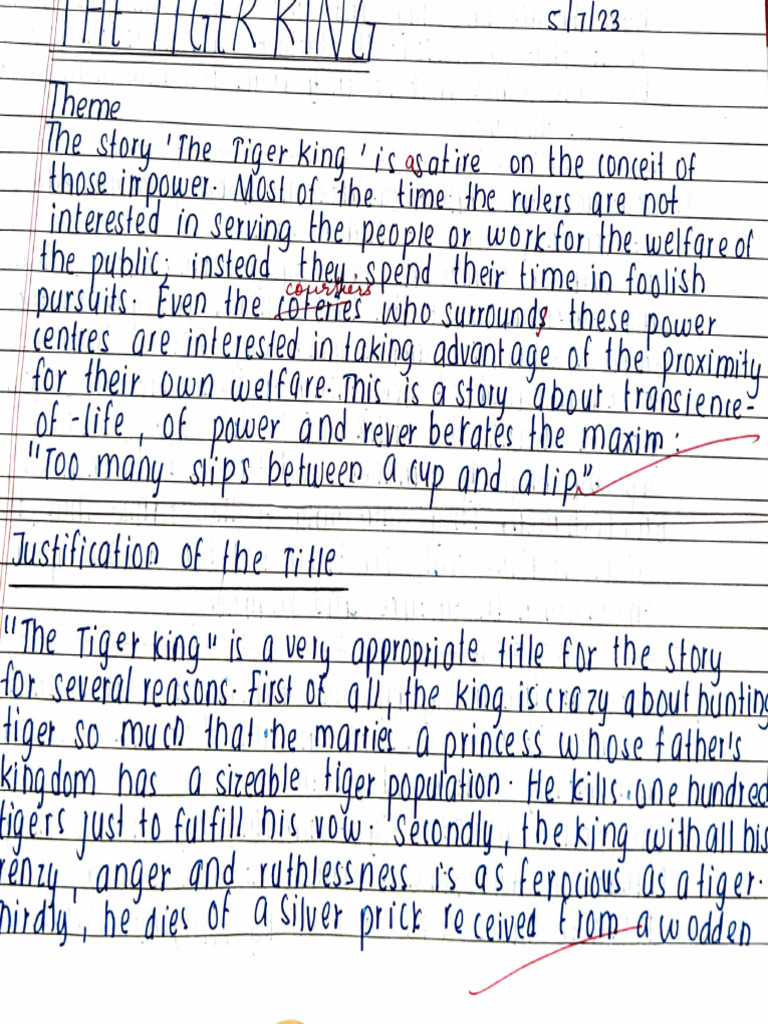 THE TIGER KING
5/7/23
Theme
The story 'The Tiger king' is a satire on the conceit of
those in power. Most of the time the rulers are not
interested in serving the people or work for the welfare of
the public; instead they spend their time in foolish
courtiers
pursuits. Even the coteries who surrounds these power
centres are interested in taking advantage of the proximity
for their own welfare. This is a story about transience-
of-life, of power and reverberates the maxim:
"Too many slips between a cup and a lip".
Justification of the Title
"The Tiger king" is a very appropriate title for the story
for several reasons. First of all, the king is crazy about hunting
tiger so much that he marries a princess whose father's
kingdom has a sizeable tiger population. He kills one hundred
tigers just to fulfill his vow. Secondly, the king with all his
renzy, anger and ruthlessness is as ferocious as a tiger.
hirdly, he dies of a silver prick received from a wodden